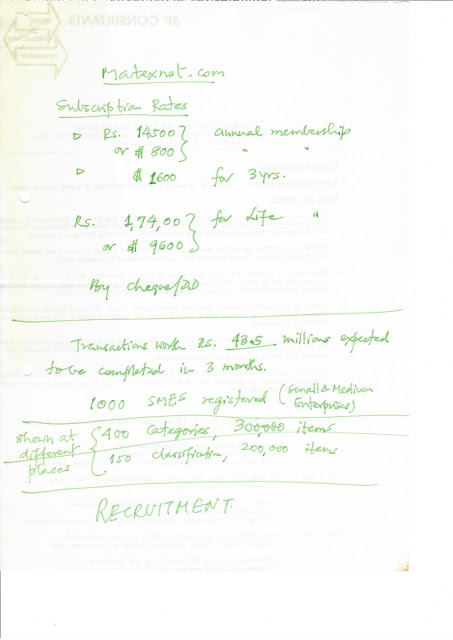 3P CONSULTANTS
Matexnet.com
Subscription Rates
▷ Rs. 14500 } annual membership
or $ 800 } " "
▷ $ 1600 for 3 yrs.
Rs. 1,74,00 } for Life "
or $ 9600 }
By cheque/DD
Transactions worth Rs. 43.5 millions expected
to be completed in 3 months.
1000 SMES registered (Small & Medium
Enterprises)
Shown at different places { 400 Categories, 300,000 items
150 classification, 200,000 items
RECRUITMENT.